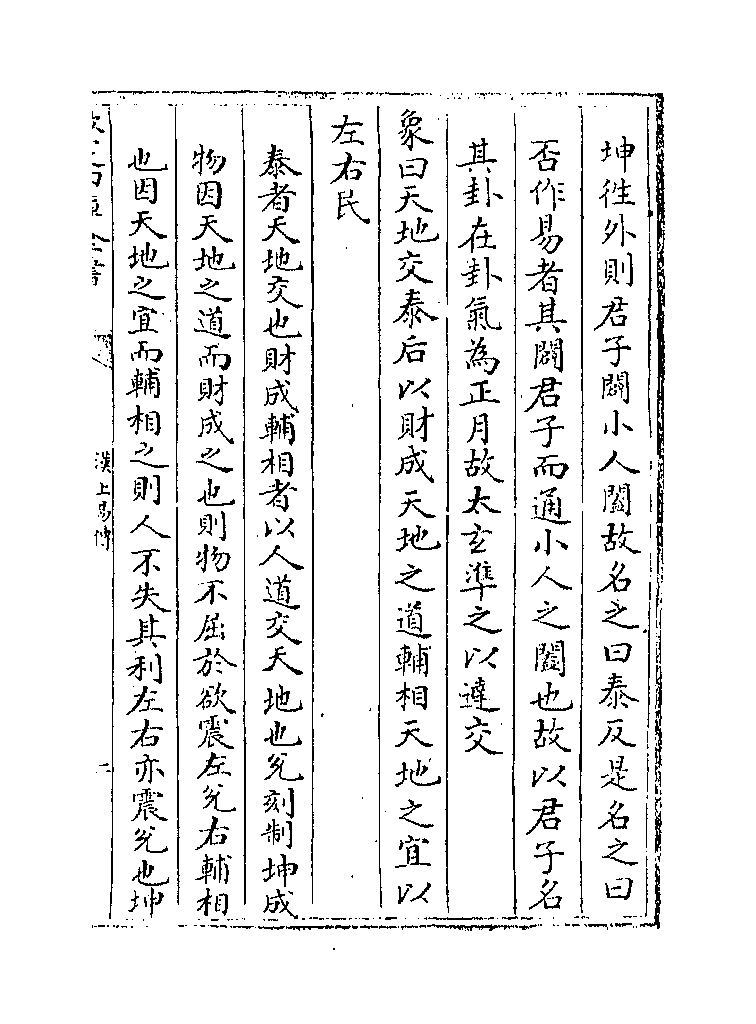 坤徃外則君子闢小人闔故名之曰泰反是名之曰
否作易者其闢君子而通小人之闔也故以君子名
其卦在卦氣為正月故太玄準之以達交
象曰天地交泰后以財成天地之道輔相天地之宜以
左右民
泰者天地交也財成輔相者以人道交天地也兌刻制坤成
物因天地之道而財成之也則物不屈於欲震左兌右輔相
也因天地之宜而輔相之則人不失其利左右亦震兌也坤
漢上易傳
二